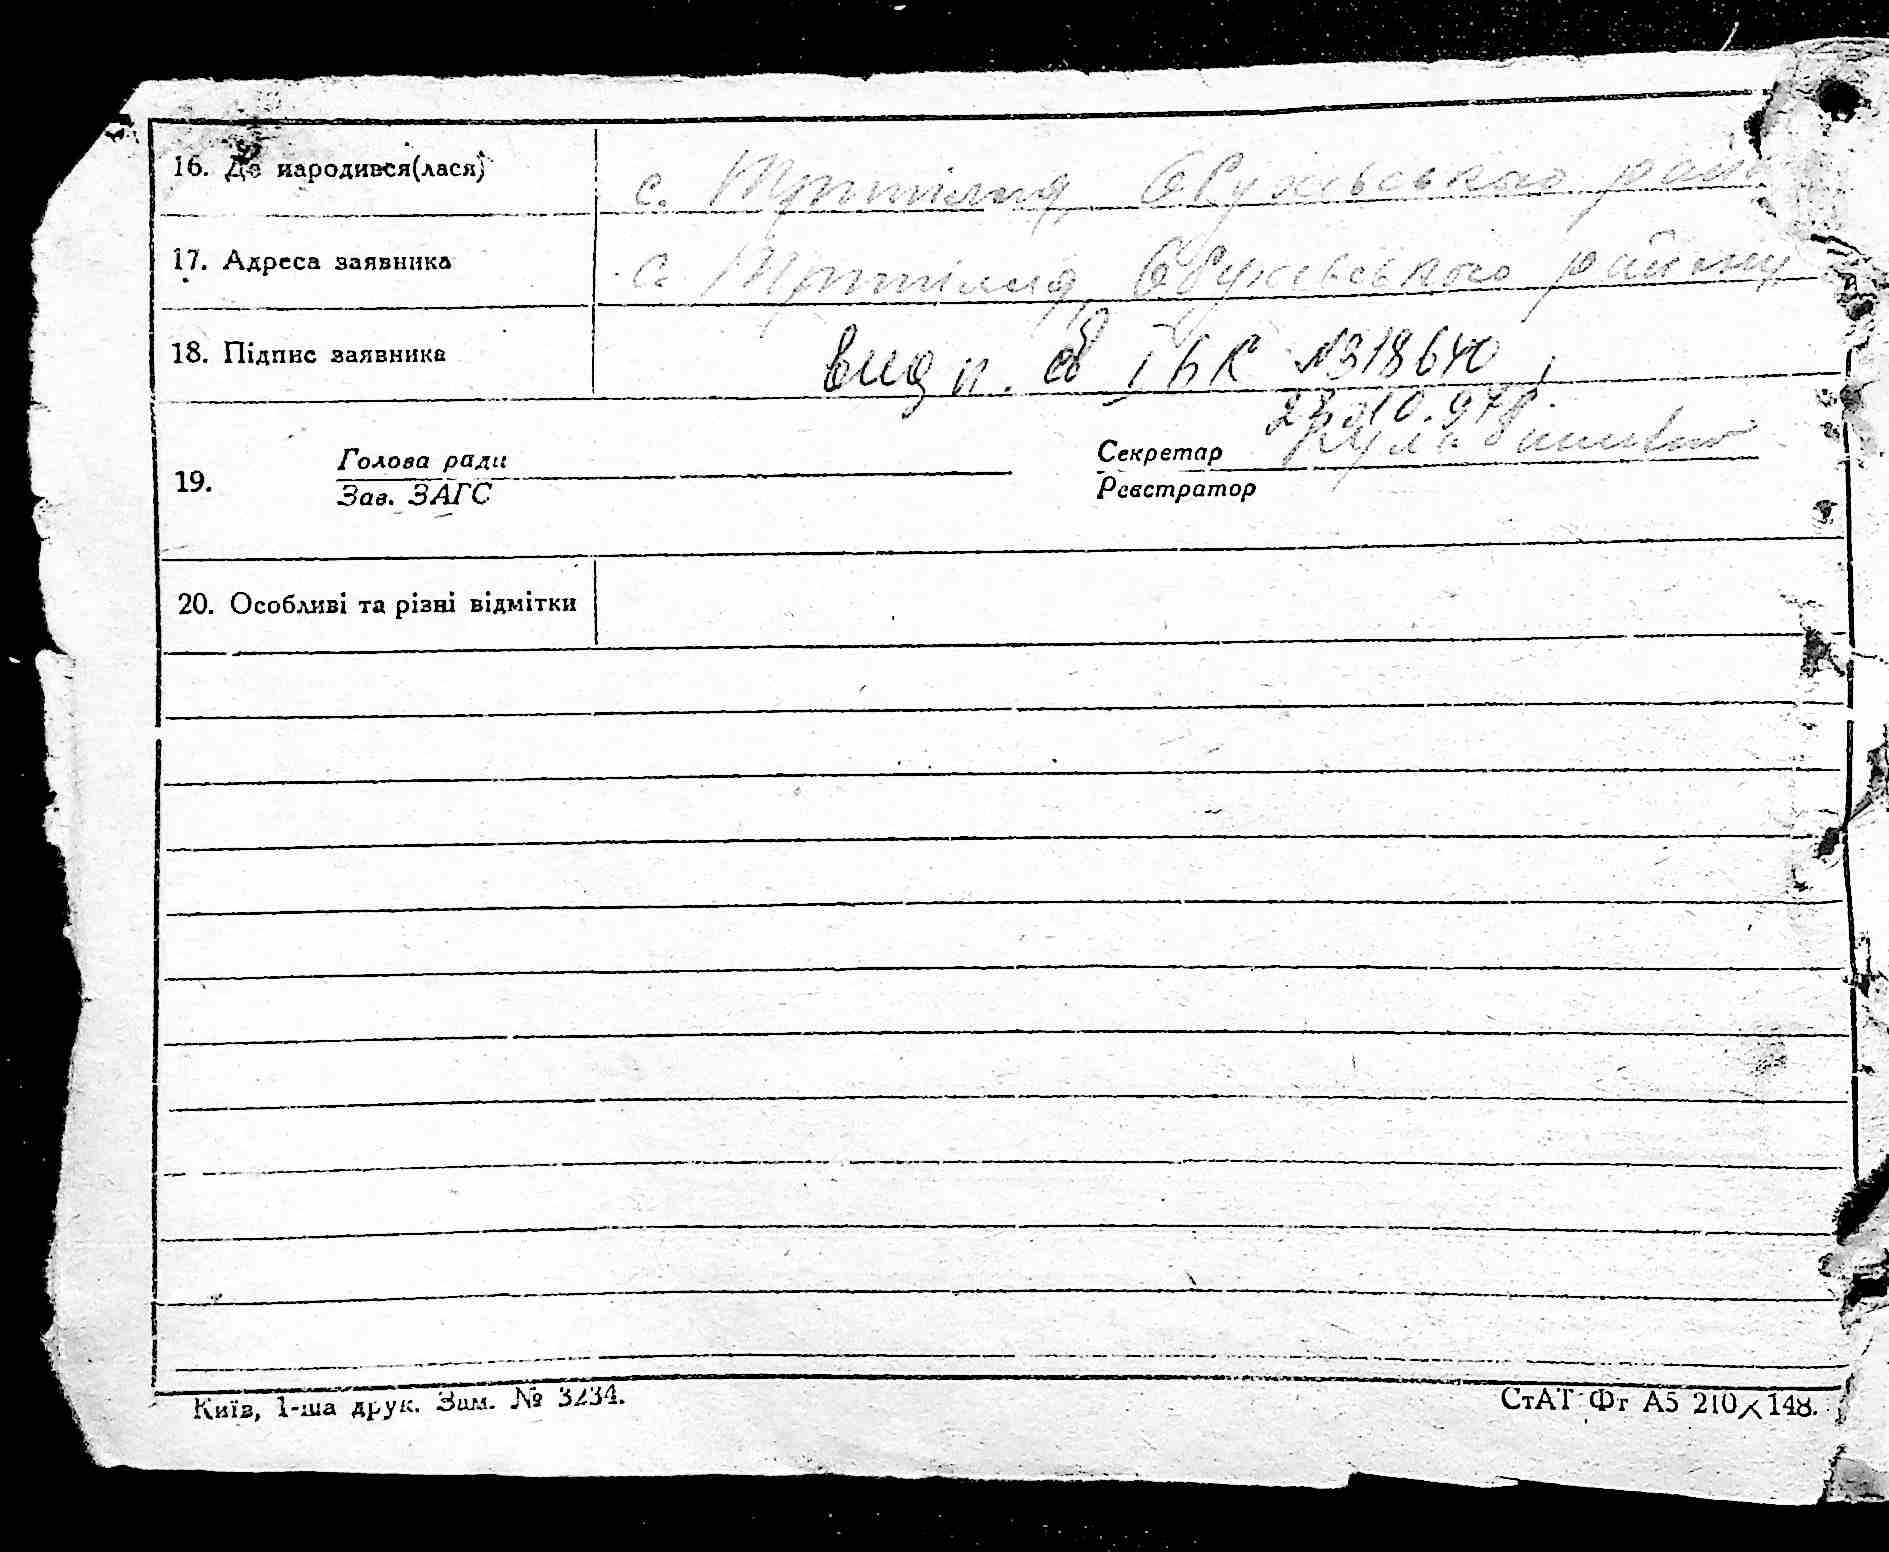 16. Де народився(лася) с. Трипілля, Обухівського рай
17. Адреса заявника с. Трипілля, Обухівського району
18. Підпис заявника вид п. св І БК №318640
10.97
Голова ради Секретар
19.
Зав. ЗАГС Реєстратор
20. Особливі та різні відмітки
Київ, 1-ша друк. Зам. № 3234. СтАТ Фг А5 210×148.